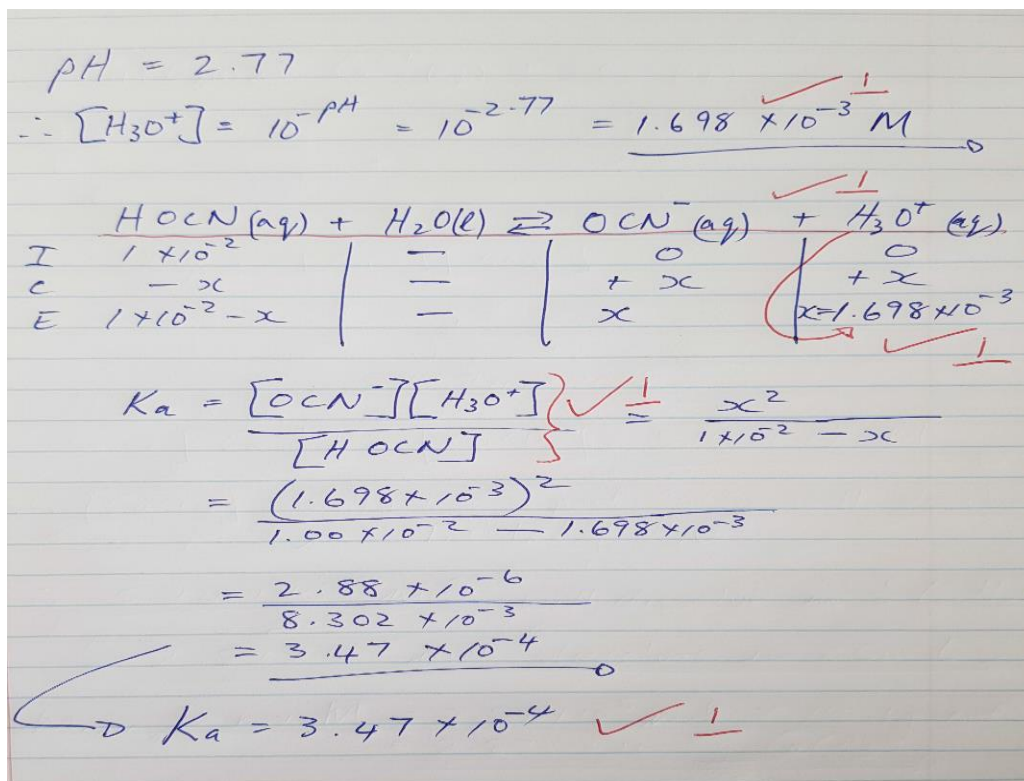 pH = 2.77
∴ [H₃O⁺] = 10^-pH = 10^-2.77 = 1.698 ×10⁻³ M ✓ 1
HOCN(aq) + H₂O(l) ⇌ OCN⁻(aq) + H₃O⁺(aq) ✓ 1
I 1 ×10⁻² — 0 0
C - x — + x + x
E 1×10⁻² - x — x x=1.698×10⁻³ ✓ 1
Ka = [OCN⁻][H₃O⁺] / [HOCN] } ✓ 1 = x² / 1×10⁻² - x
= (1.698×10⁻³)² / 1.00×10⁻² - 1.698×10⁻³
= 2.88 ×10⁻⁶ / 8.302 ×10⁻³
= 3.47 ×10⁻⁴
Ka = 3.47 ×10⁻⁴ ✓ 1